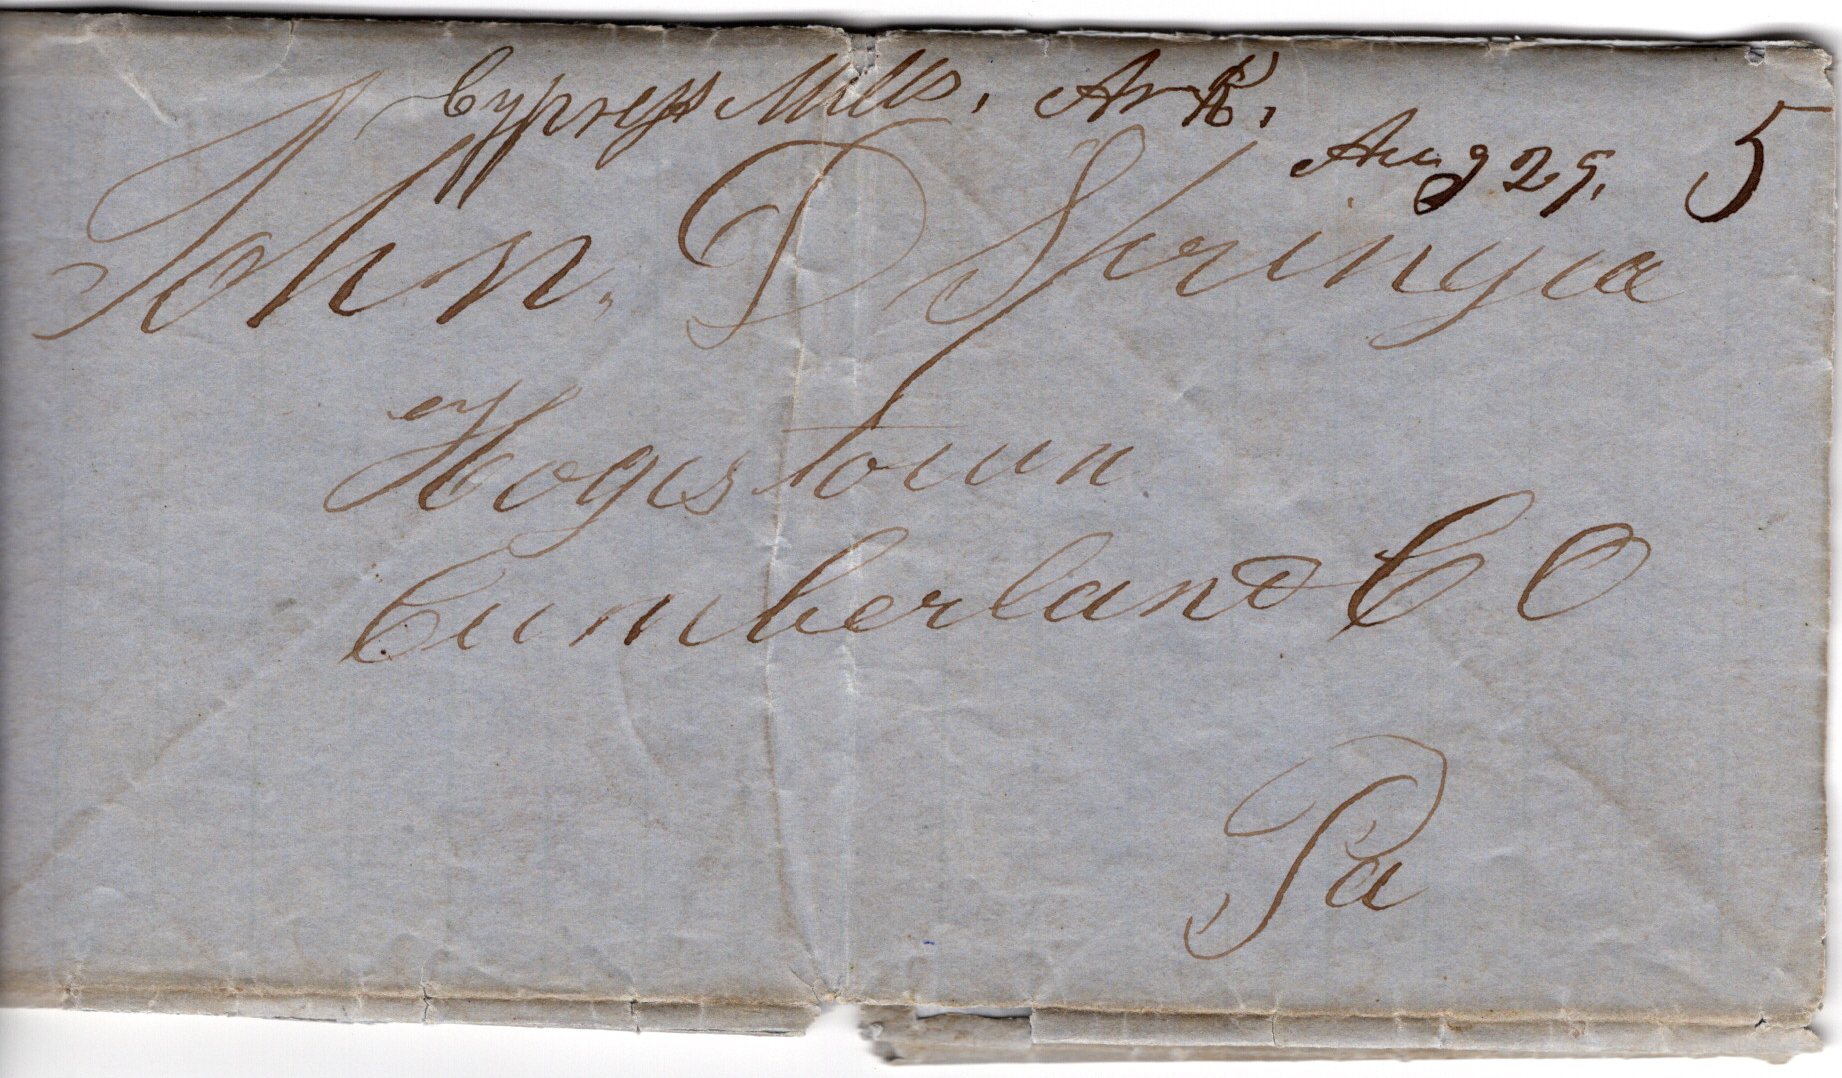 Cypress Mills, Ark,
Aug 29. 5
John. D Springer
Hogestown
Cumberland CO
Pa